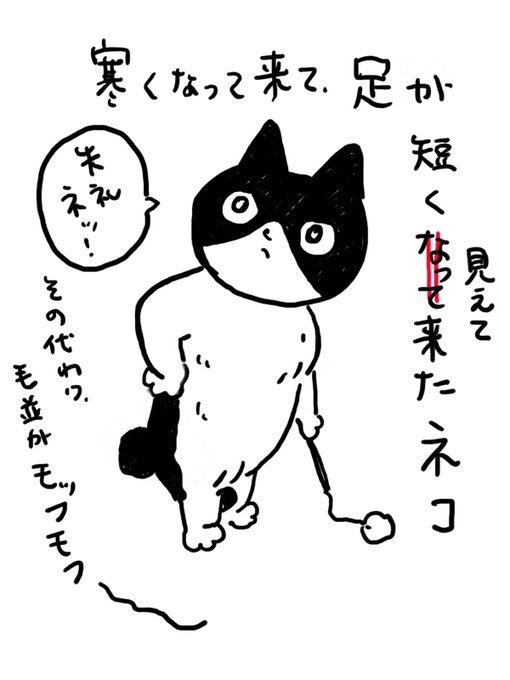 寒くなって来て、足が
短くなって来たネコ
見えて
失礼
ネッ!
その代わり、
毛並がモッフモフ